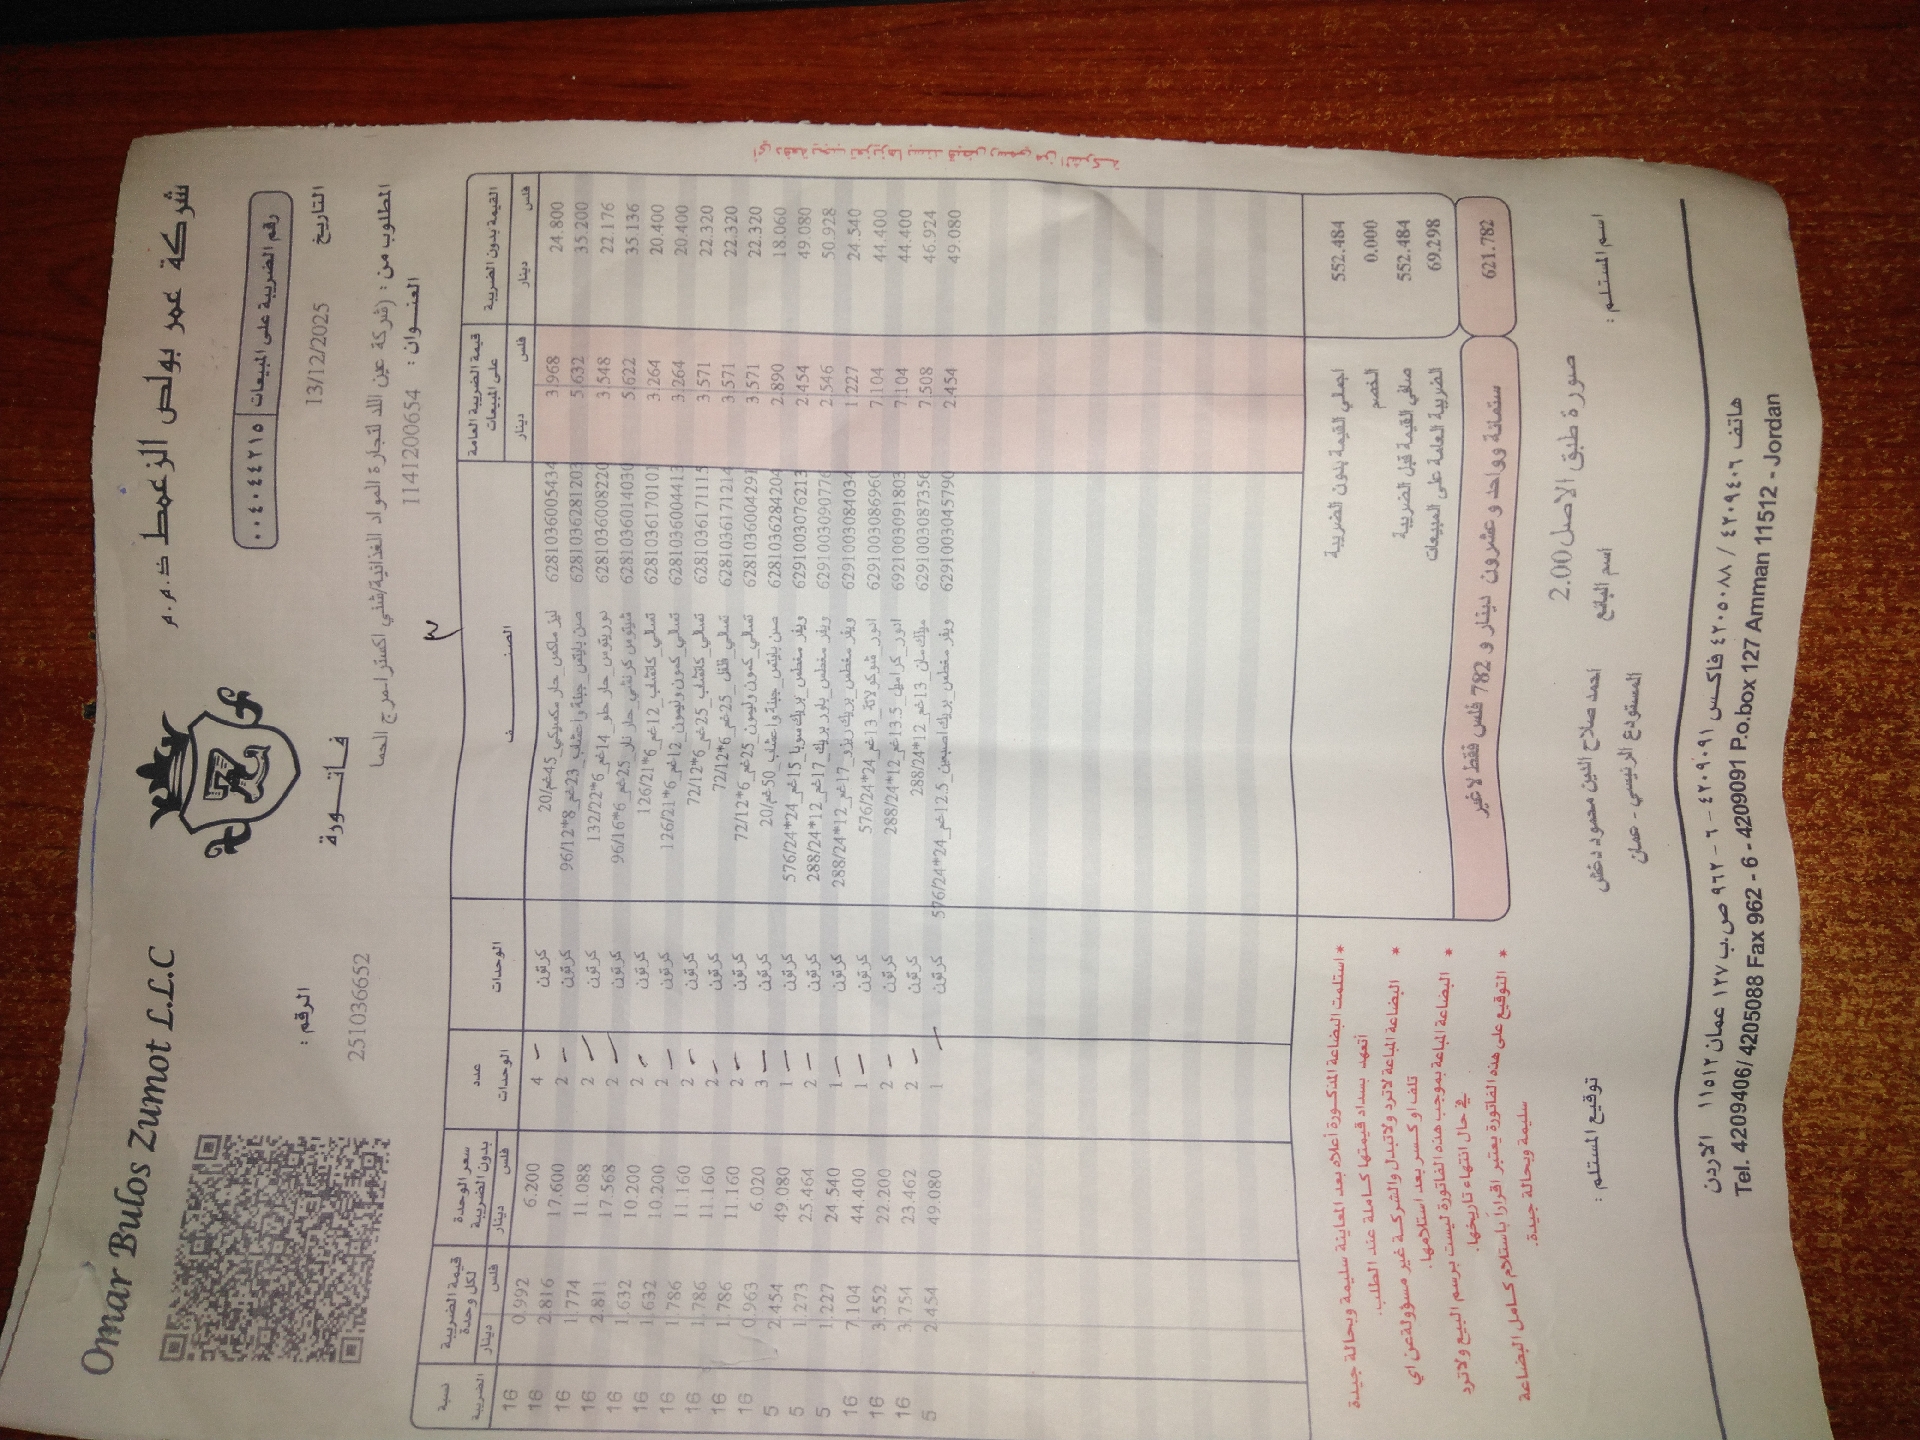 Omar Bulos Zumot L.L.C
شركة عمر بولص الزعمط ذ.م.م
رقم الضريبة على المبيعات ٠٠٤٠٤٤٢١٥
فاتورة
التاريخ 13/12/2025
الرقم :
251036652
المطلوب من : (شركة عين اللد لتجارة المواد الغذائية/شني اكسترا-مرج الحما
العنوان : 1141200654
القيمة بدون الضريبة
قيمة الضريبة العامة على المبيعات
الصنف
الوحدات
عدد الوحدات
سعر الوحدة بدون الضريبة
قيمة الضريبة لكل وحدة
نسبة الضريبة
دينار فلس
24.800 3.968 6281036005434 ليز ماكس_حار مكسيكي_45غم/20 كرتون 4 6.200 0.992 16
35.200 5.632 6281036281203 صن بايتس_جبنة واعشاب_23غم_8*96/12 كرتون 2 17.600 2.816 16
22.176 3.548 6281036008220 دوريتوس_حار حلو_14غم_6*132/22 كرتون 2 11.088 1.774 16
35.136 5.622 6281036014030 شيتوس كرنشي_حار نار_25غم_6*96/16 كرتون 2 17.568 2.811 16
20.400 3.264 6281036170101 تسالي_كاتشاب_12غم_6*126/21 كرتون 2 10.200 1.632 16
20.400 3.264 6281036004413 تسالي_كمون وليمون_12غم_6*126/21 كرتون 2 10.200 1.632 16
22.320 3.571 6281036171115 تسالي_كاتشاب_25غم_6*72/12 كرتون 2 11.160 1.786 16
22.320 3.571 6281036171214 تسالي_فلفل_25غم_6*72/12 كرتون 2 11.160 1.786 16
22.320 3.571 6281036004291 تسالي_كمون وليمون_25غم_6*72/12 كرتون 2 11.160 1.786 16
18.060 2.890 6281036284204 صن بايتس_جبنة واعشاب_50غم/20 كرتون 3 6.020 0.963 16
49.080 2.454 6291003076213 ويفر مغطس_بريك سويا_15غم_24*576/24 كرتون 1 49.080 2.454 5
50.928 2.546 6291003090776 ويفر مغطس_باور بريك_17غم_12*288/24 كرتون 2 25.464 1.273 5
24.540 1.227 6291003084034 ويفر مغطس_بريك اريزو_17غم_12*288/24 كرتون 1 24.540 1.227 5
44.400 7.104 6291003086960 اندور_شوكولاتة_13غم_24*576/24 كرتون 1 44.400 7.104 16
44.400 7.104 6921003091803 اندور_كراميل_13.5غم_12*288/24 كرتون 2 22.200 3.552 16
46.924 7.508 6291003087356 ميلك مان_13غم_12*288/24 كرتون 2 23.462 3.754 16
49.080 2.454 6291003045790 ويفر مغطس_بريك اصبعين_12.5غم_24*576/24 كرتون 1 49.080 2.454 5
اجمالي القيمة بدون الضريبة 552.484
الخصم 0.000
صافي القيمة قبل الضريبة 552.484
الضريبة العامة على المبيعات 69.298
ستمائة وواحد وعشرون دينار و 782 فلس فقط لا غير 621.782
* استلمت البضاعة المذكورة أعلاه بعد المعاينة سليمة وبحالة جيدة
أتعهد بسداد قيمتها كاملة عند الطلب.
* البضاعة المباعة لاترد ولاتبدل والشركة غير مسؤولة عن اي
تلف او كسر بعد استلامها.
* البضاعة المباعة بموجب هذه الفاتورة ليست برسم البيع ولاترد
في حال انتهاء تاريخها.
* التوقيع على هذه الفاتورة يعتبر اقراراً باستلام كامل البضاعة
سليمة وبحالة جيدة.
صورة طبق الاصل 2.00
اسم المستلم :
اسم البائع احمد صلاح الدين محمود دخش
المستودع الرئيسي - عمان
توقيع المستلم :
هاتف ٤٢٠٩٤٠٦ / ٤٢٠٥٠٨٨ فاكس ٤٢٠٩٠٩١ - ٦ - ٩٦٢ ص.ب ١٢٧ عمان ١١٥١٢ الاردن
Tel. 4209406/ 4205088 Fax 962 - 6 - 4209091 P.o.box 127 Amman 11512 - Jordan
أي دفعة يجب تعزيزها بسند قبض رسمي من الشركة